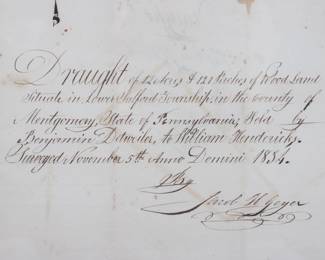 Draught of 12 Acres & 121 Perches of Wood Land
Situate in Lower Salford Township, in the County of
Montgomery, State of Pennsylvania; Sold by
Benjamin Detwiler, to William Hendricks.
Surveyed November 5th Anno Domini 1834.
By
Jacob H Geyer